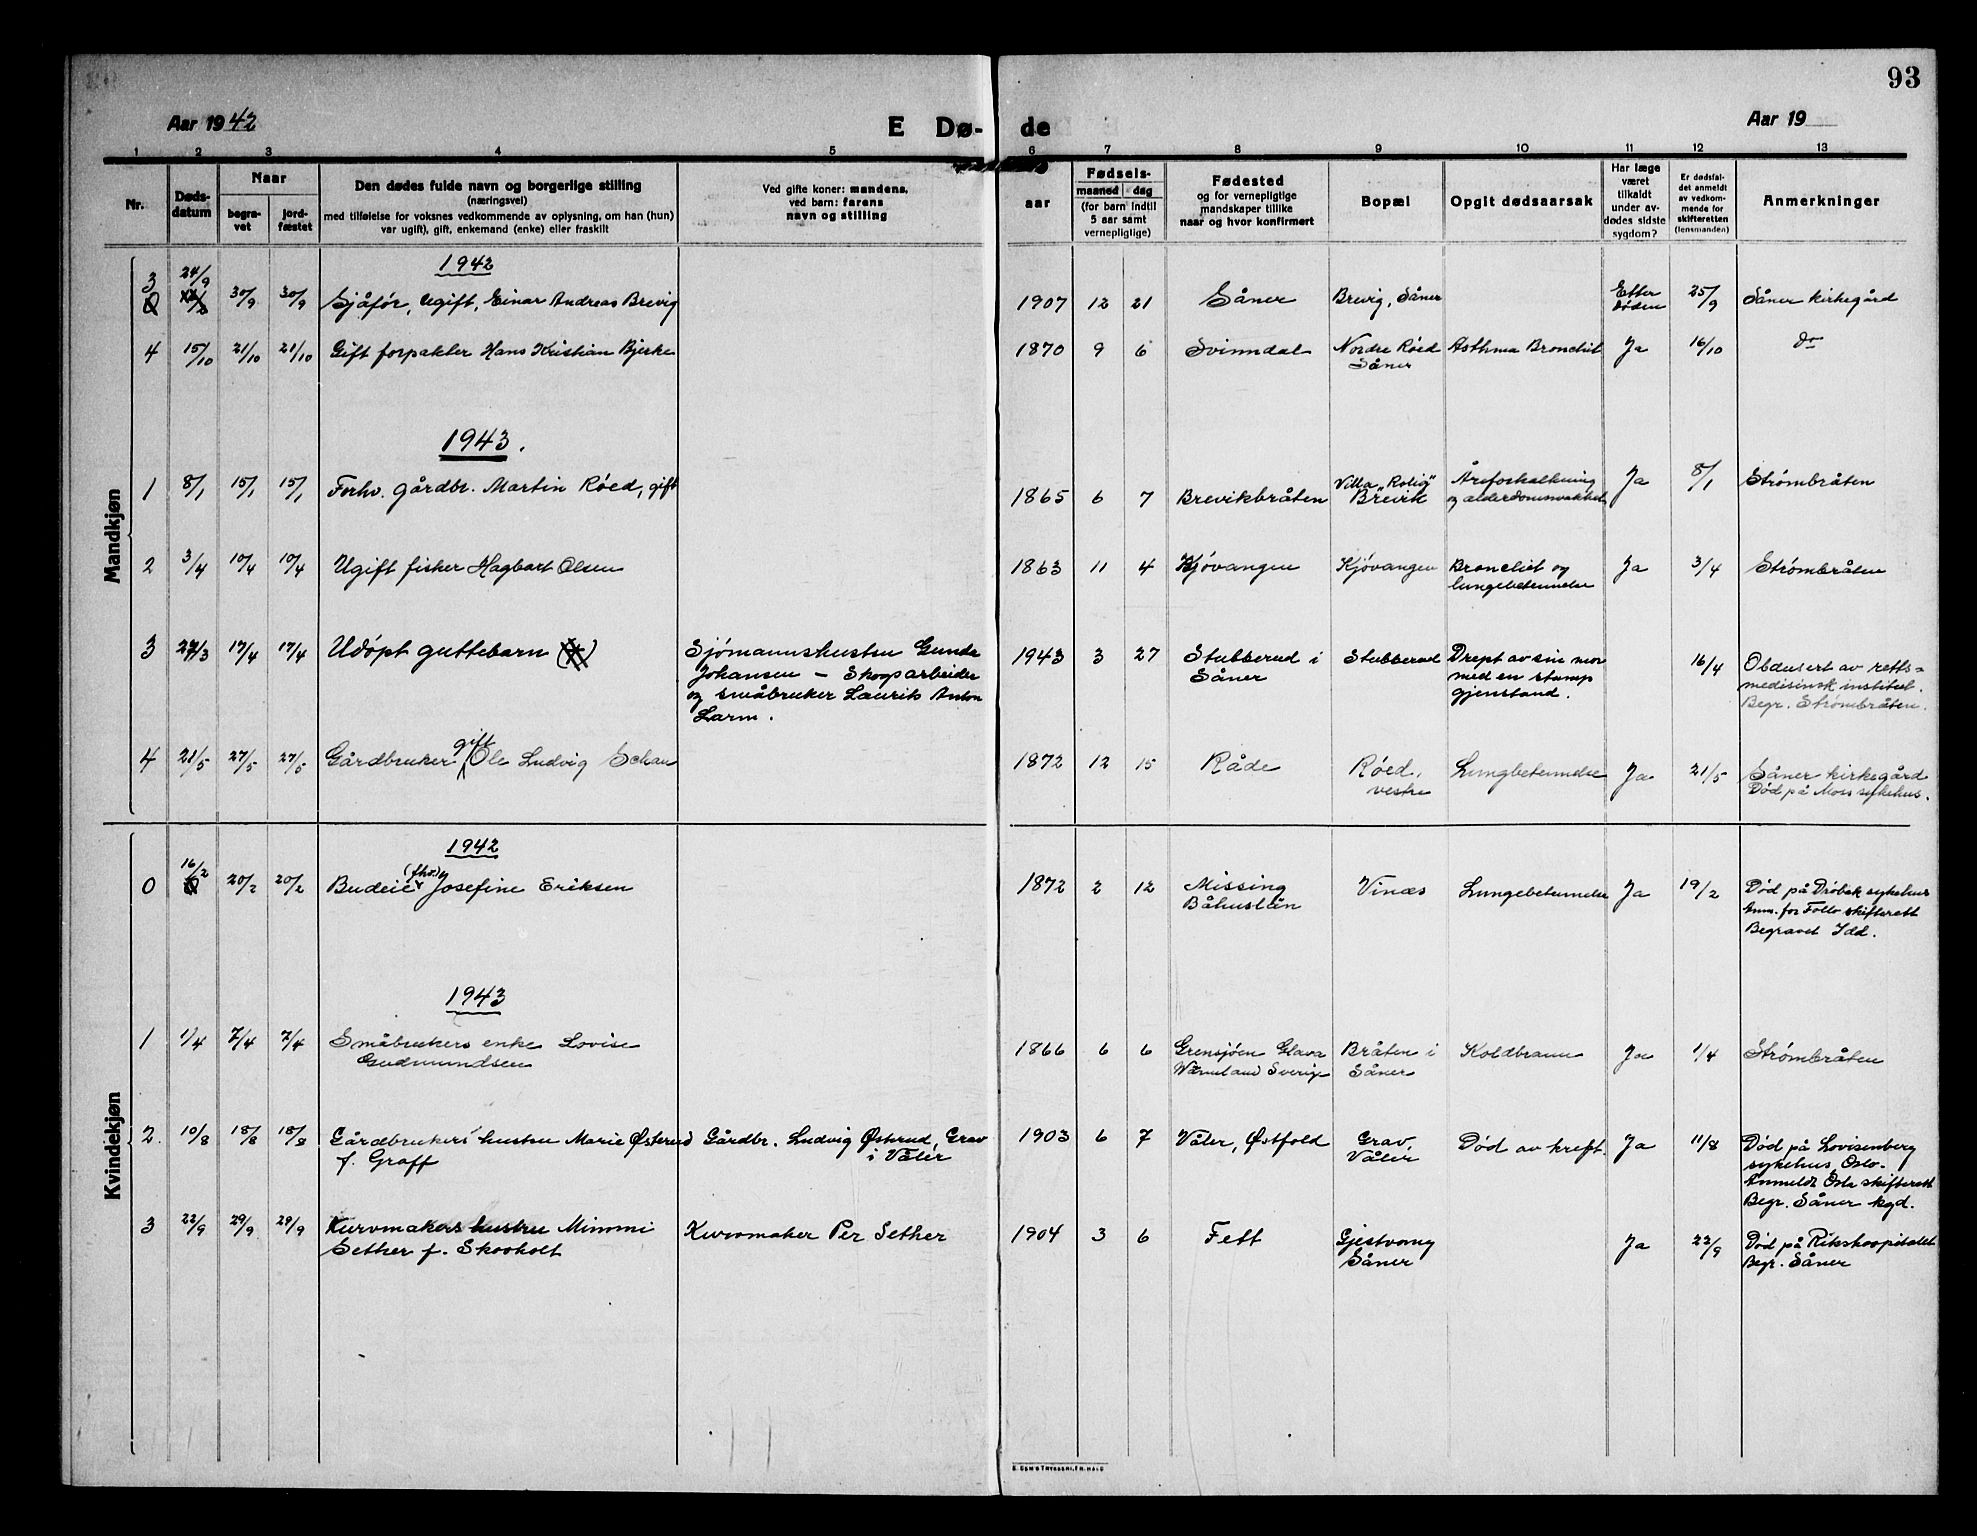 93
Aar 1942
E Dø-
de
Aar 19
1 2 3 4 5 6 7 8 9 10 11 12 13
Nr.
Døds-
datum
Naar
begra-
vet
jord-
fæstet
Den dødes fulde navn og borgerlige stilling
(næringsvei)
med tilføielse for voksnes vedkommende av oplysning, om han (hun)
var ugift), gift, enkemand (enke) eller fraskilt
Ved gifte koner: mandens,
ved barn: farens
navn og stilling
aar
Fødsels-
maaned dag
(for barn indtil
5 aar samt
vernepligtige)
Fødested
og for vernepligtige
mandskaper tillike
naar og hvor konfirmert
Bopæl
Opgit dødsaarsak
Har læge
været
tilkaldt
under av-
dødes sidste
sygdom?
Er dødsfal-
det anmeldt
av vedkom-
mende for
skifteretten
(lensmanden)
Anmerkninger
Mandkjøn
1942
3 24/9 30/9 30/9 Sjåfør, ugift, Einar Andreas Brevig 1907 12 21 Såner Brevig, Såner Etter døden 25/9 Såner kirkegård
4 15/10 21/10 21/10 Gift forpakter Hans Kristian Bjerke 1870 9 6 Svinndal Nordre Røed Såner Asthma Bronchit Ja 16/10 do
1943.
1 8/1 15/1 15/1 Forhv. gårdbr. Martin Røed, gift 1865 6 7 Brevikbråten Villa "Rolig" Brevik Åreforkalkning og alderdomssvakhet Ja 8/1 Strømbråten
2 3/4 10/4 10/4 Ugift fisker Hagbart Olsen 1863 11 4 Kjøvangen Kjøvangen Bronchit og lungebetennelse Ja 3/4 Strømbråten
3 27/3 17/4 17/4 Udøpt guttebarn
Sjømannshustru Gunda
Johansen – Skogsarbeider
og småbruker Laurits Anton
Larm.
1943 3 27 Stubberud i Såner Stubberud
Drept av sin mor
med en stump
gjenstand.
16/4
Obdusert av retts-
medisinsk institut.
Begr. Strømbråten.
4 21/5 27/5 27/5 Gårdbruker gift Ole Ludvig Schau 1872 12 15 Råde Røed, vestre Lungbetennelse Ja 21/5 Såner kirkegård
Død på Moss sykehus.
Kvindekjøn
1942
0 16/2 20/2 20/2 Budeie (fhv.) Josefine Eriksen 1872 2 12 Missing Båhuslän Vinæs Lungebetennelse Ja 19/2
Død på Drøbak sykehus
Anm. for Follo skifterett
Begravet Idd.
1943
1 1/4 7/4 7/4 Småbrukers enke Lovise
Gudmundsen
1866 6 6 Grensjøen Glava
Värmland Sverige
Bråten i Såner Koldbrann Ja 1/4 Strømbråten
2. 10/8 18/8 18/8 Gårdbrukers hustru Marie Østerud
f. Graff
Gårdbr. Ludvig Østerud, Grav
i Våler
1903 6 7 Våler, Østfold Grav, Våler Død av kreft. Ja 11/8
Død på Lovisenberg
sykehus, Oslo.
Anmeldt Oslo skifterett
Begr. Såner kgd.
3 22/9 29/9 29/9 Kurvmakers hustru Mimmi
Sether f. Skooholt
Kurvmaker Per Sether
1904 3 6 Fett Gjestvang Såner Ja 22/9
Død på Rikshospitalet
Begr. Såner